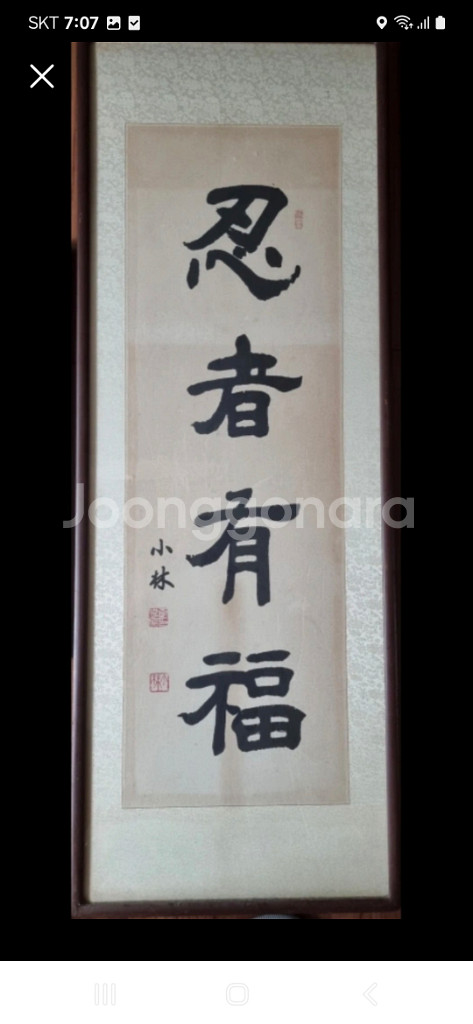 SKT 7:07
忍者有福
小林
Joonggonara